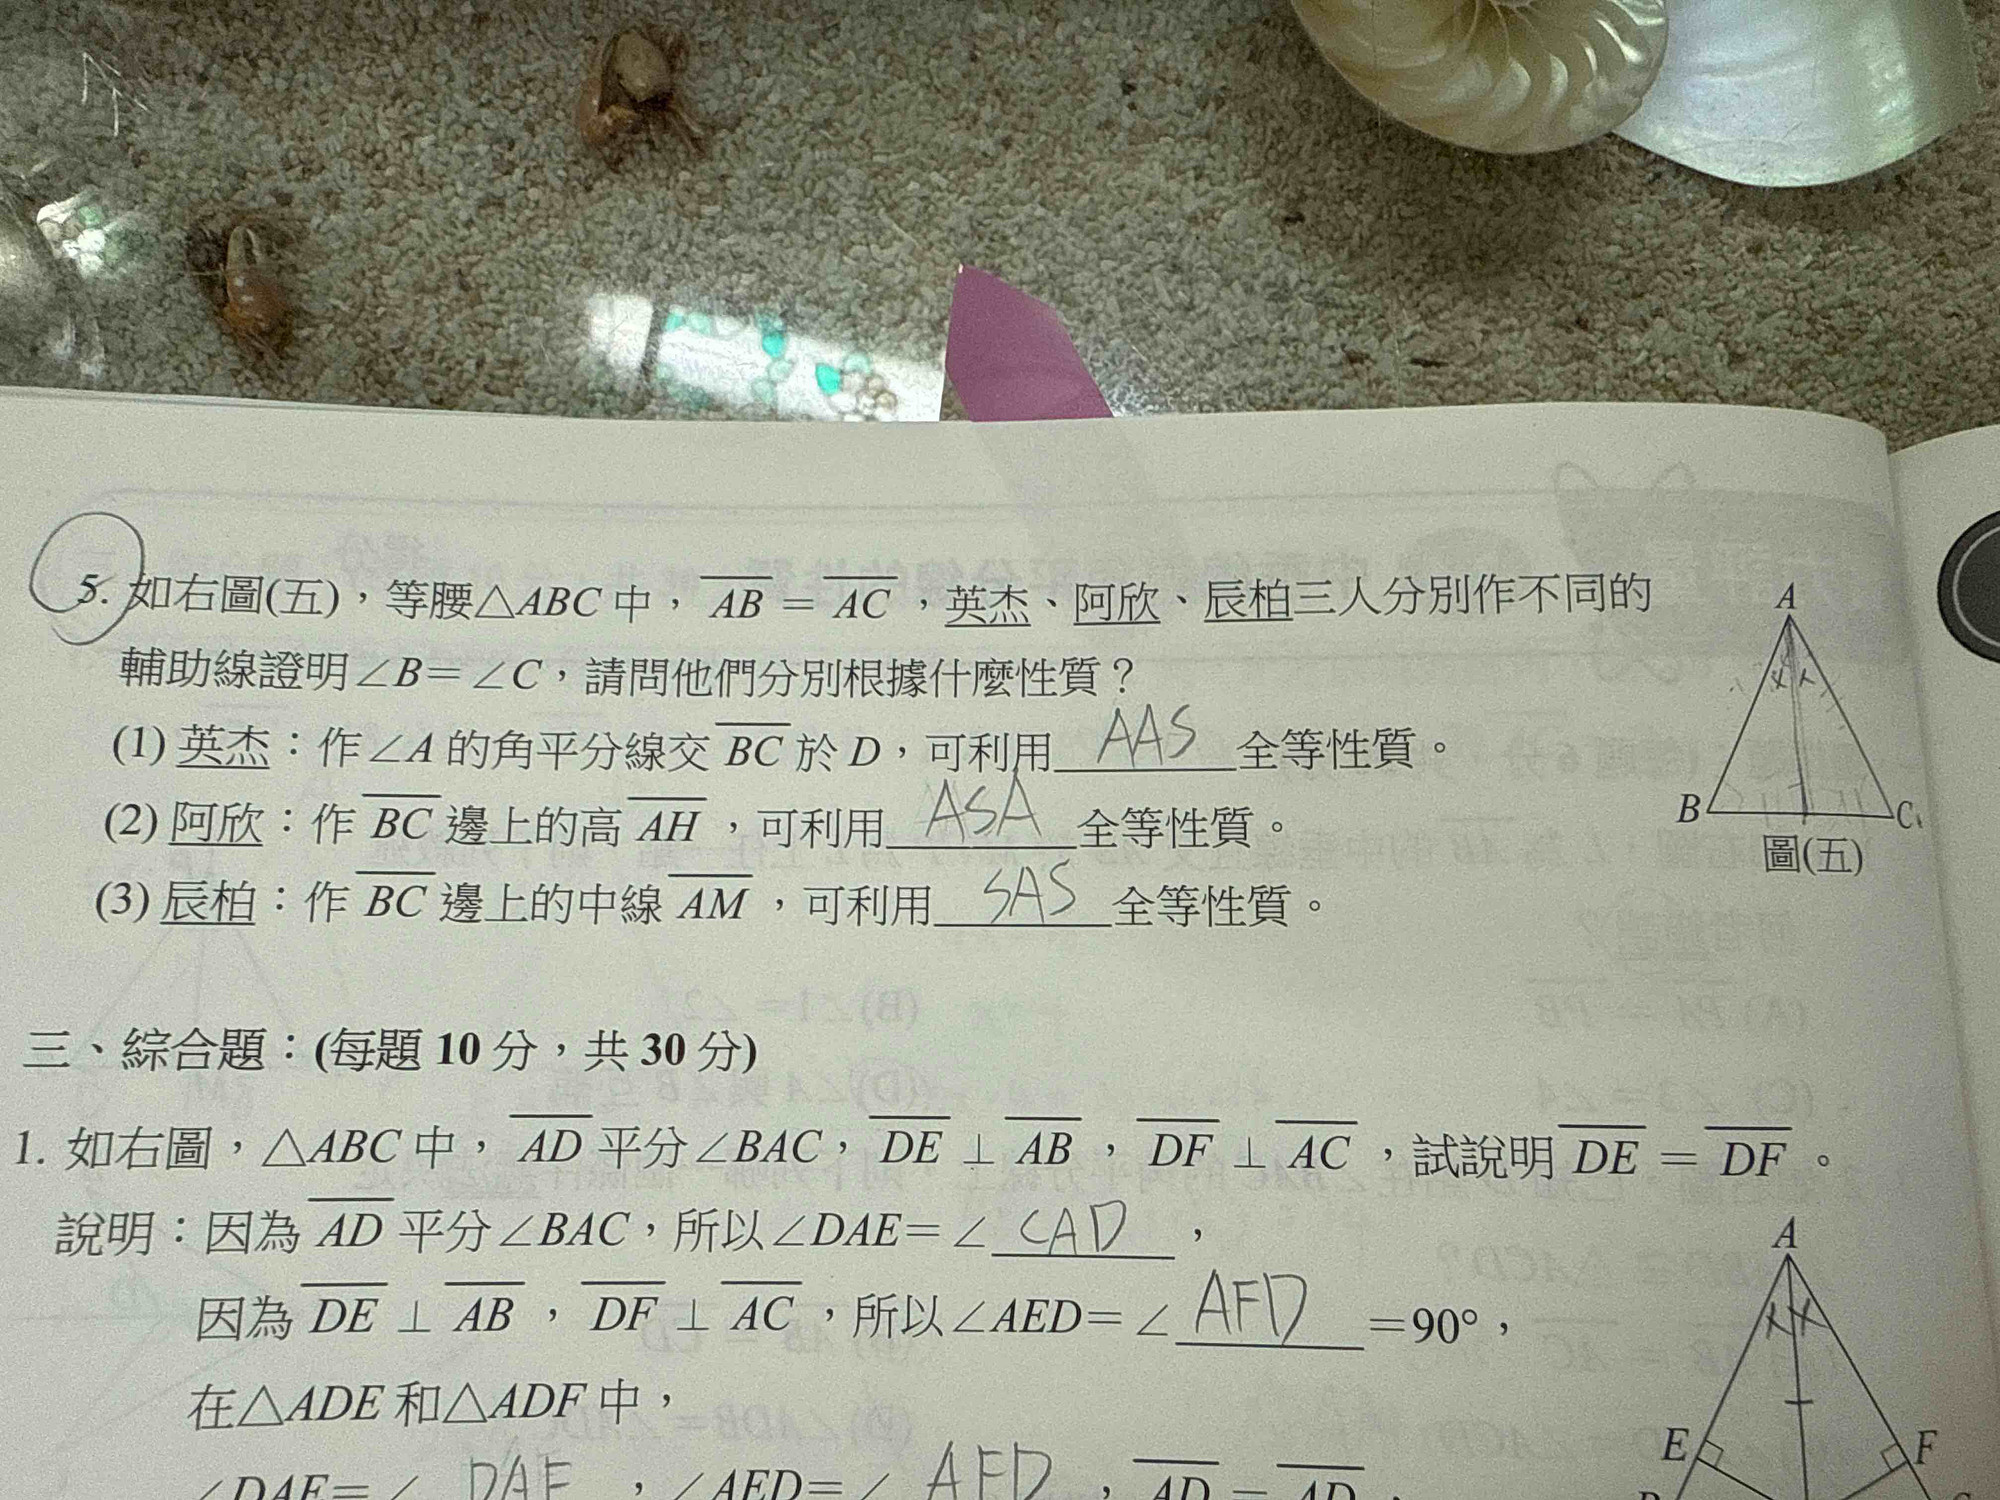 5. 如右圖(五)，等腰△ABC中，AB＝AC，英杰、阿欣、辰柏三人分別作不同的
輔助線證明∠B＝∠C，請問他們分別根據什麼性質？
(1) 英杰：作∠A的角平分線交BC於D，可利用 AAS 全等性質。
(2) 阿欣：作BC邊上的高AH，可利用 ASA 全等性質。
(3) 辰柏：作BC邊上的中線AM，可利用 SAS 全等性質。
A
B
C
圖(五)
三、綜合題：(每題10分，共30分)
1. 如右圖，△ABC中，AD平分∠BAC，DE⊥AB，DF⊥AC，試說明DE＝DF。
說明：因為AD平分∠BAC，所以∠DAE＝∠ CAD ，
因為DE⊥AB，DF⊥AC，所以∠AED＝∠ AFD ＝90°，
在△ADE和△ADF中，
∠DAE＝∠ DAF ，∠AED＝∠ AFD ，AD＝AD，
A
E
F